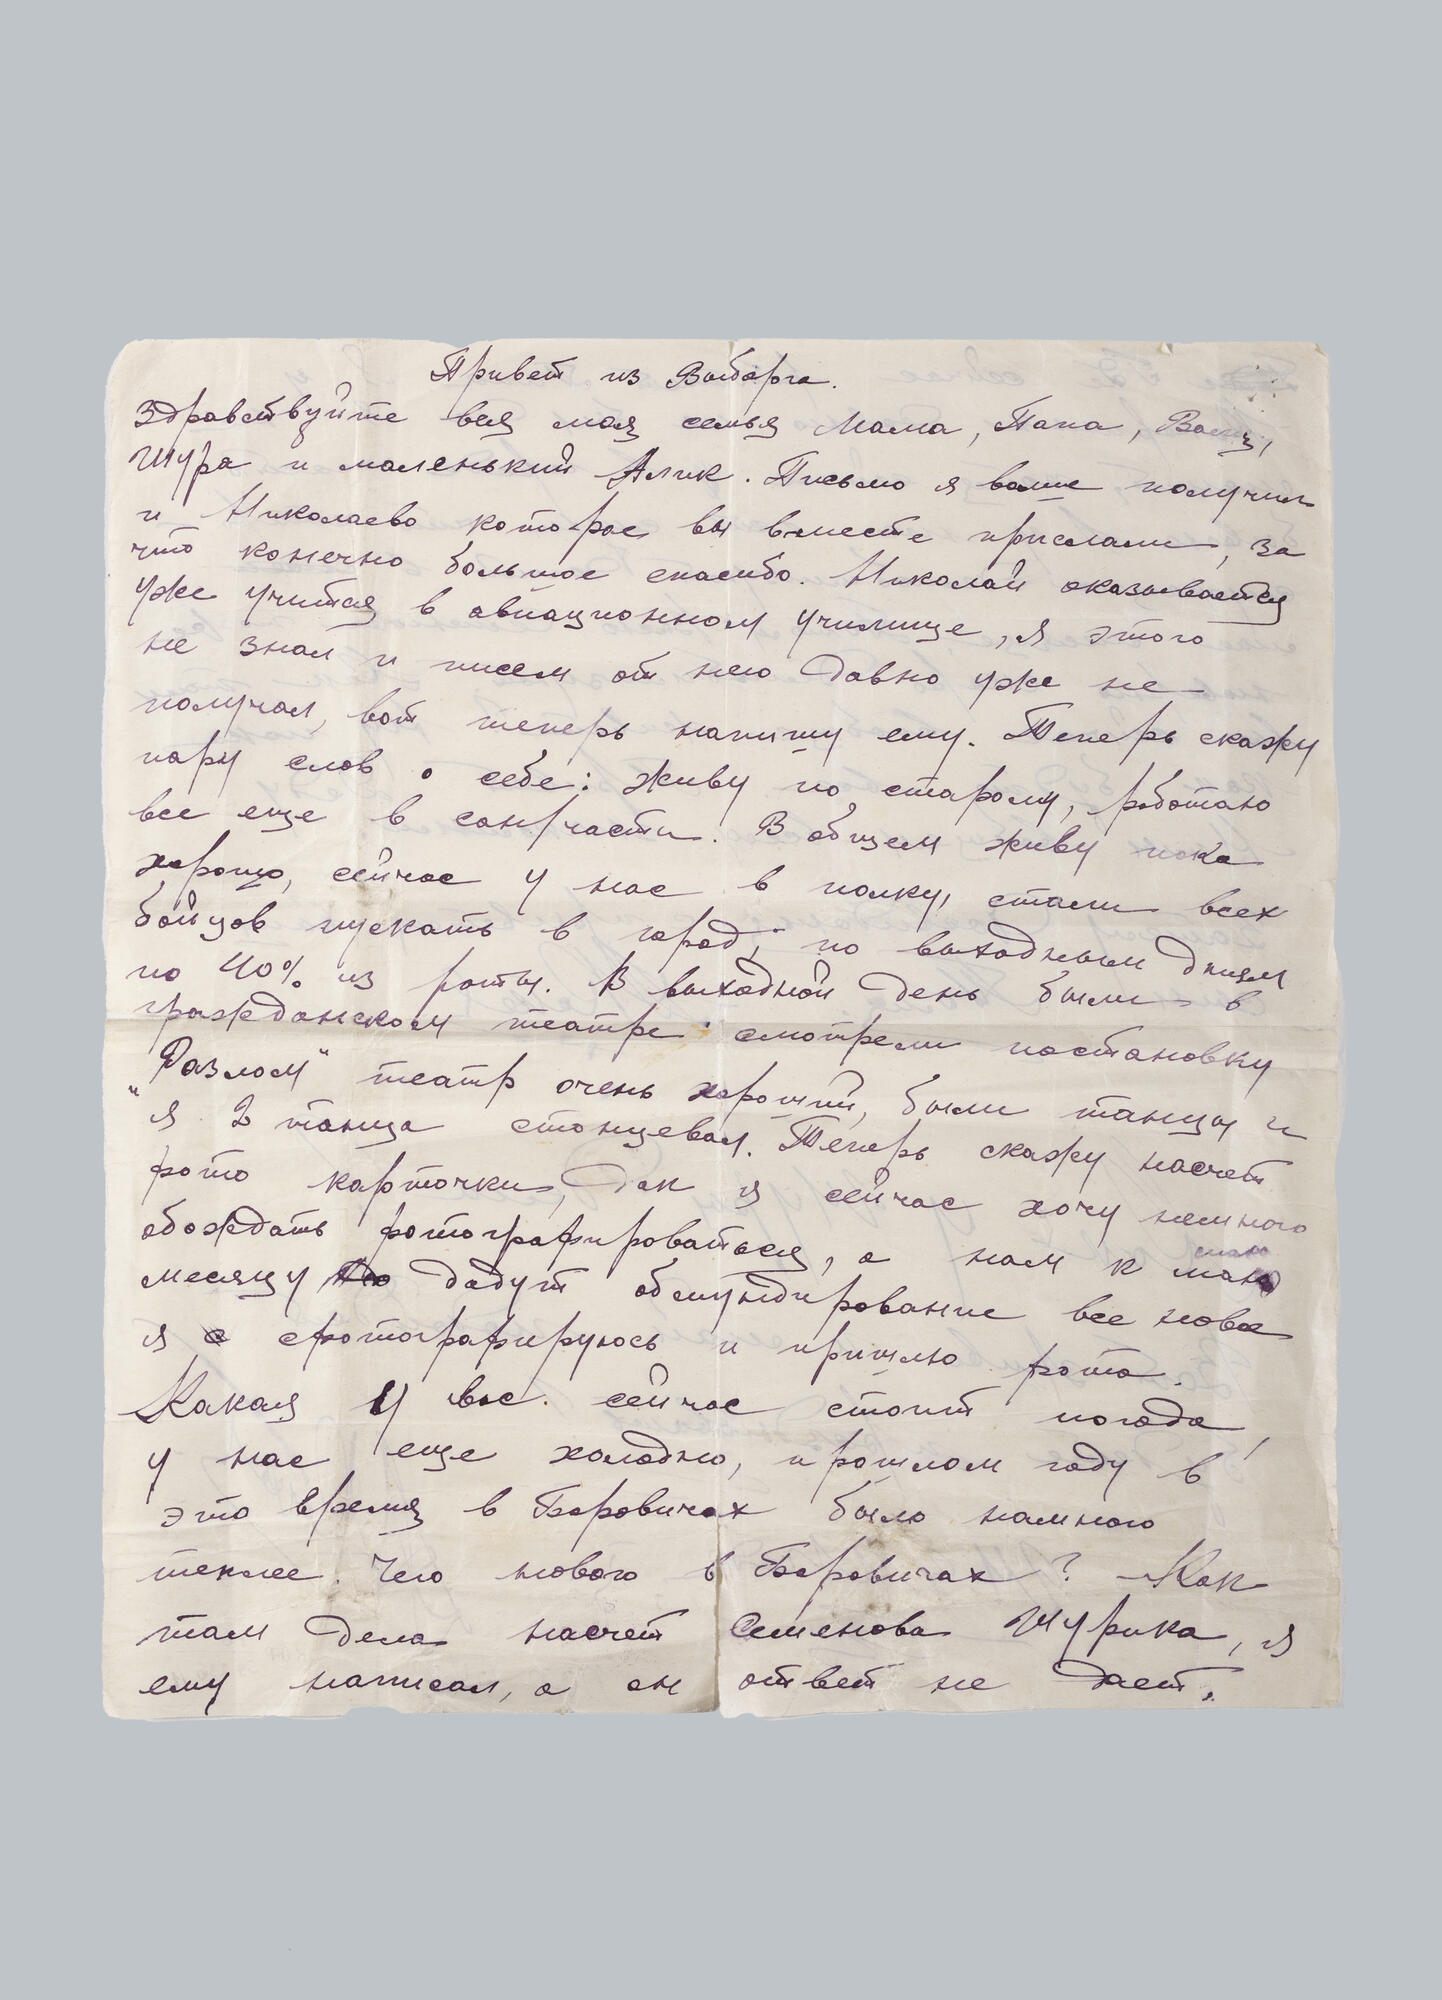 Привет из Выборга.
Здравствуйте вся моя семья Мама, Папа, Валя,
Шура и маленький Алик. Письмо я ваше получил
и Николаево которое вы вместе прислали, за
что конечно большое спасибо. Николай оказывается
уже учится в авиационном училище, я этого
не знал и писем от него давно уже не
получал, вот теперь напишу ему. Теперь скажу
пару слов о себе: живу по старому, работаю
все еще в санчасти. В общем живу пока
хорошо, сейчас у нас в полку, стали всех
бойцов пускать в город, по выходным дням
по 40% из роты. В выходной день были в
гражданском театре смотрели постановку
„Разлом" театр очень хороший, были танцы и
я 2 танца станцевал. Теперь скажу насчет
фото карточки, дак я сейчас хочу немного
обождать фотографироваться, а нам к маю
месяцу дадут обмундирование все новое
я сфотографируюсь и пришлю фото.
Какая у вас сейчас стоит погода,
у нас еще холодно, прошлом году в
это время в Боровичах было намного
теплее. Чего нового в Боровичах? Как
там дела насчет Семенова Шурика, я
ему написал, а он ответ не дает.